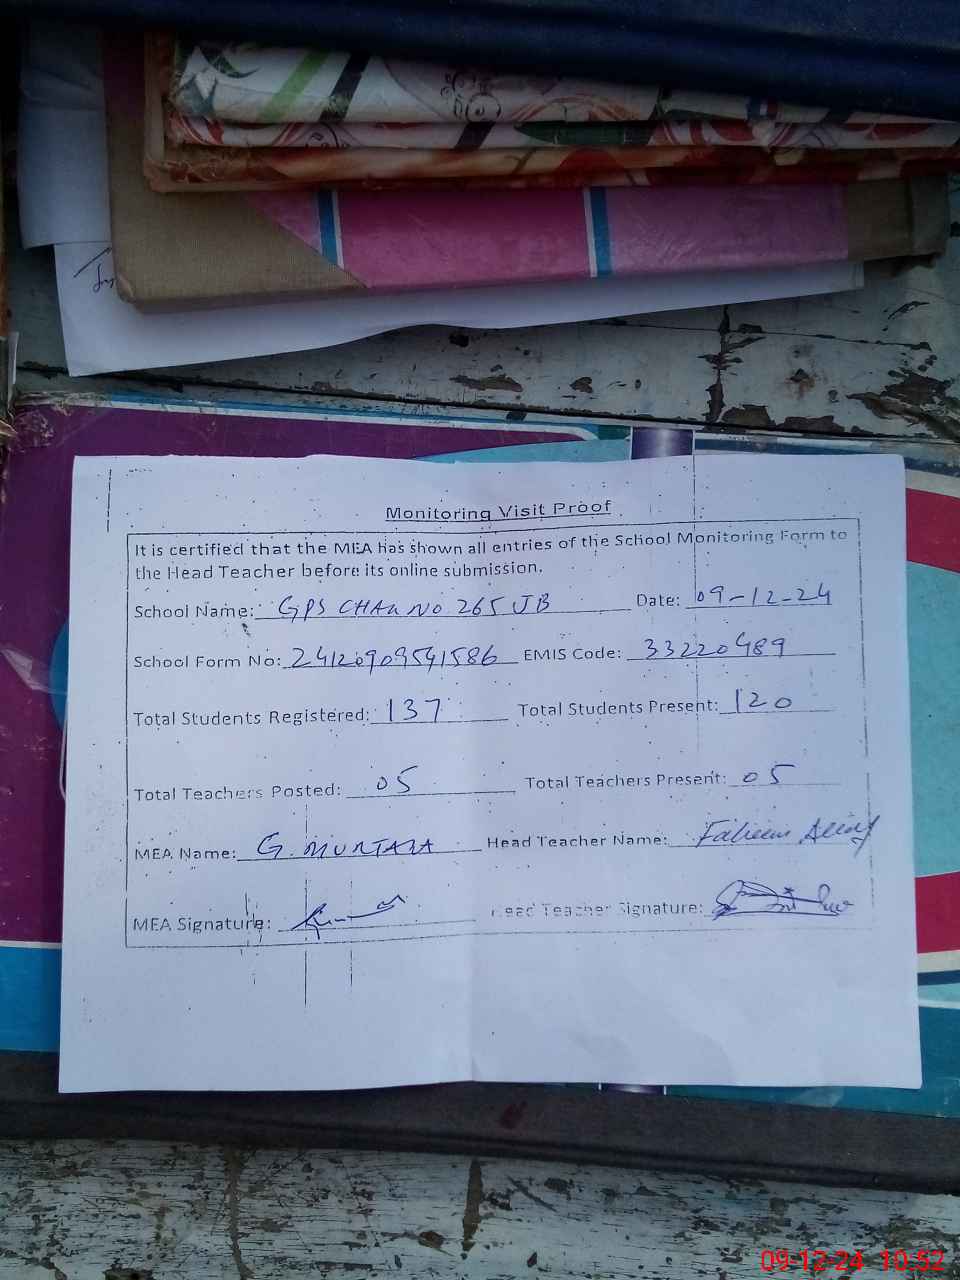 Monitoring Visit Proof
It is certified that the MEA has shown all entries of the School Monitoring Form to
the Head Teacher before its online submission.
School Name: GPS CHAK NO 265 JB Date: 09-12-24
School Form No: 24120909541586 EMIS Code: 33220489
Total Students Registered: 137 Total Students Present: 120
Total Teachers Posted: 05 Total Teachers Present: 05
MEA Name: G. MURTAZA Head Teacher Name: Faheem
MEA Signature: Head Teacher Signature:
09-12-24 10:52